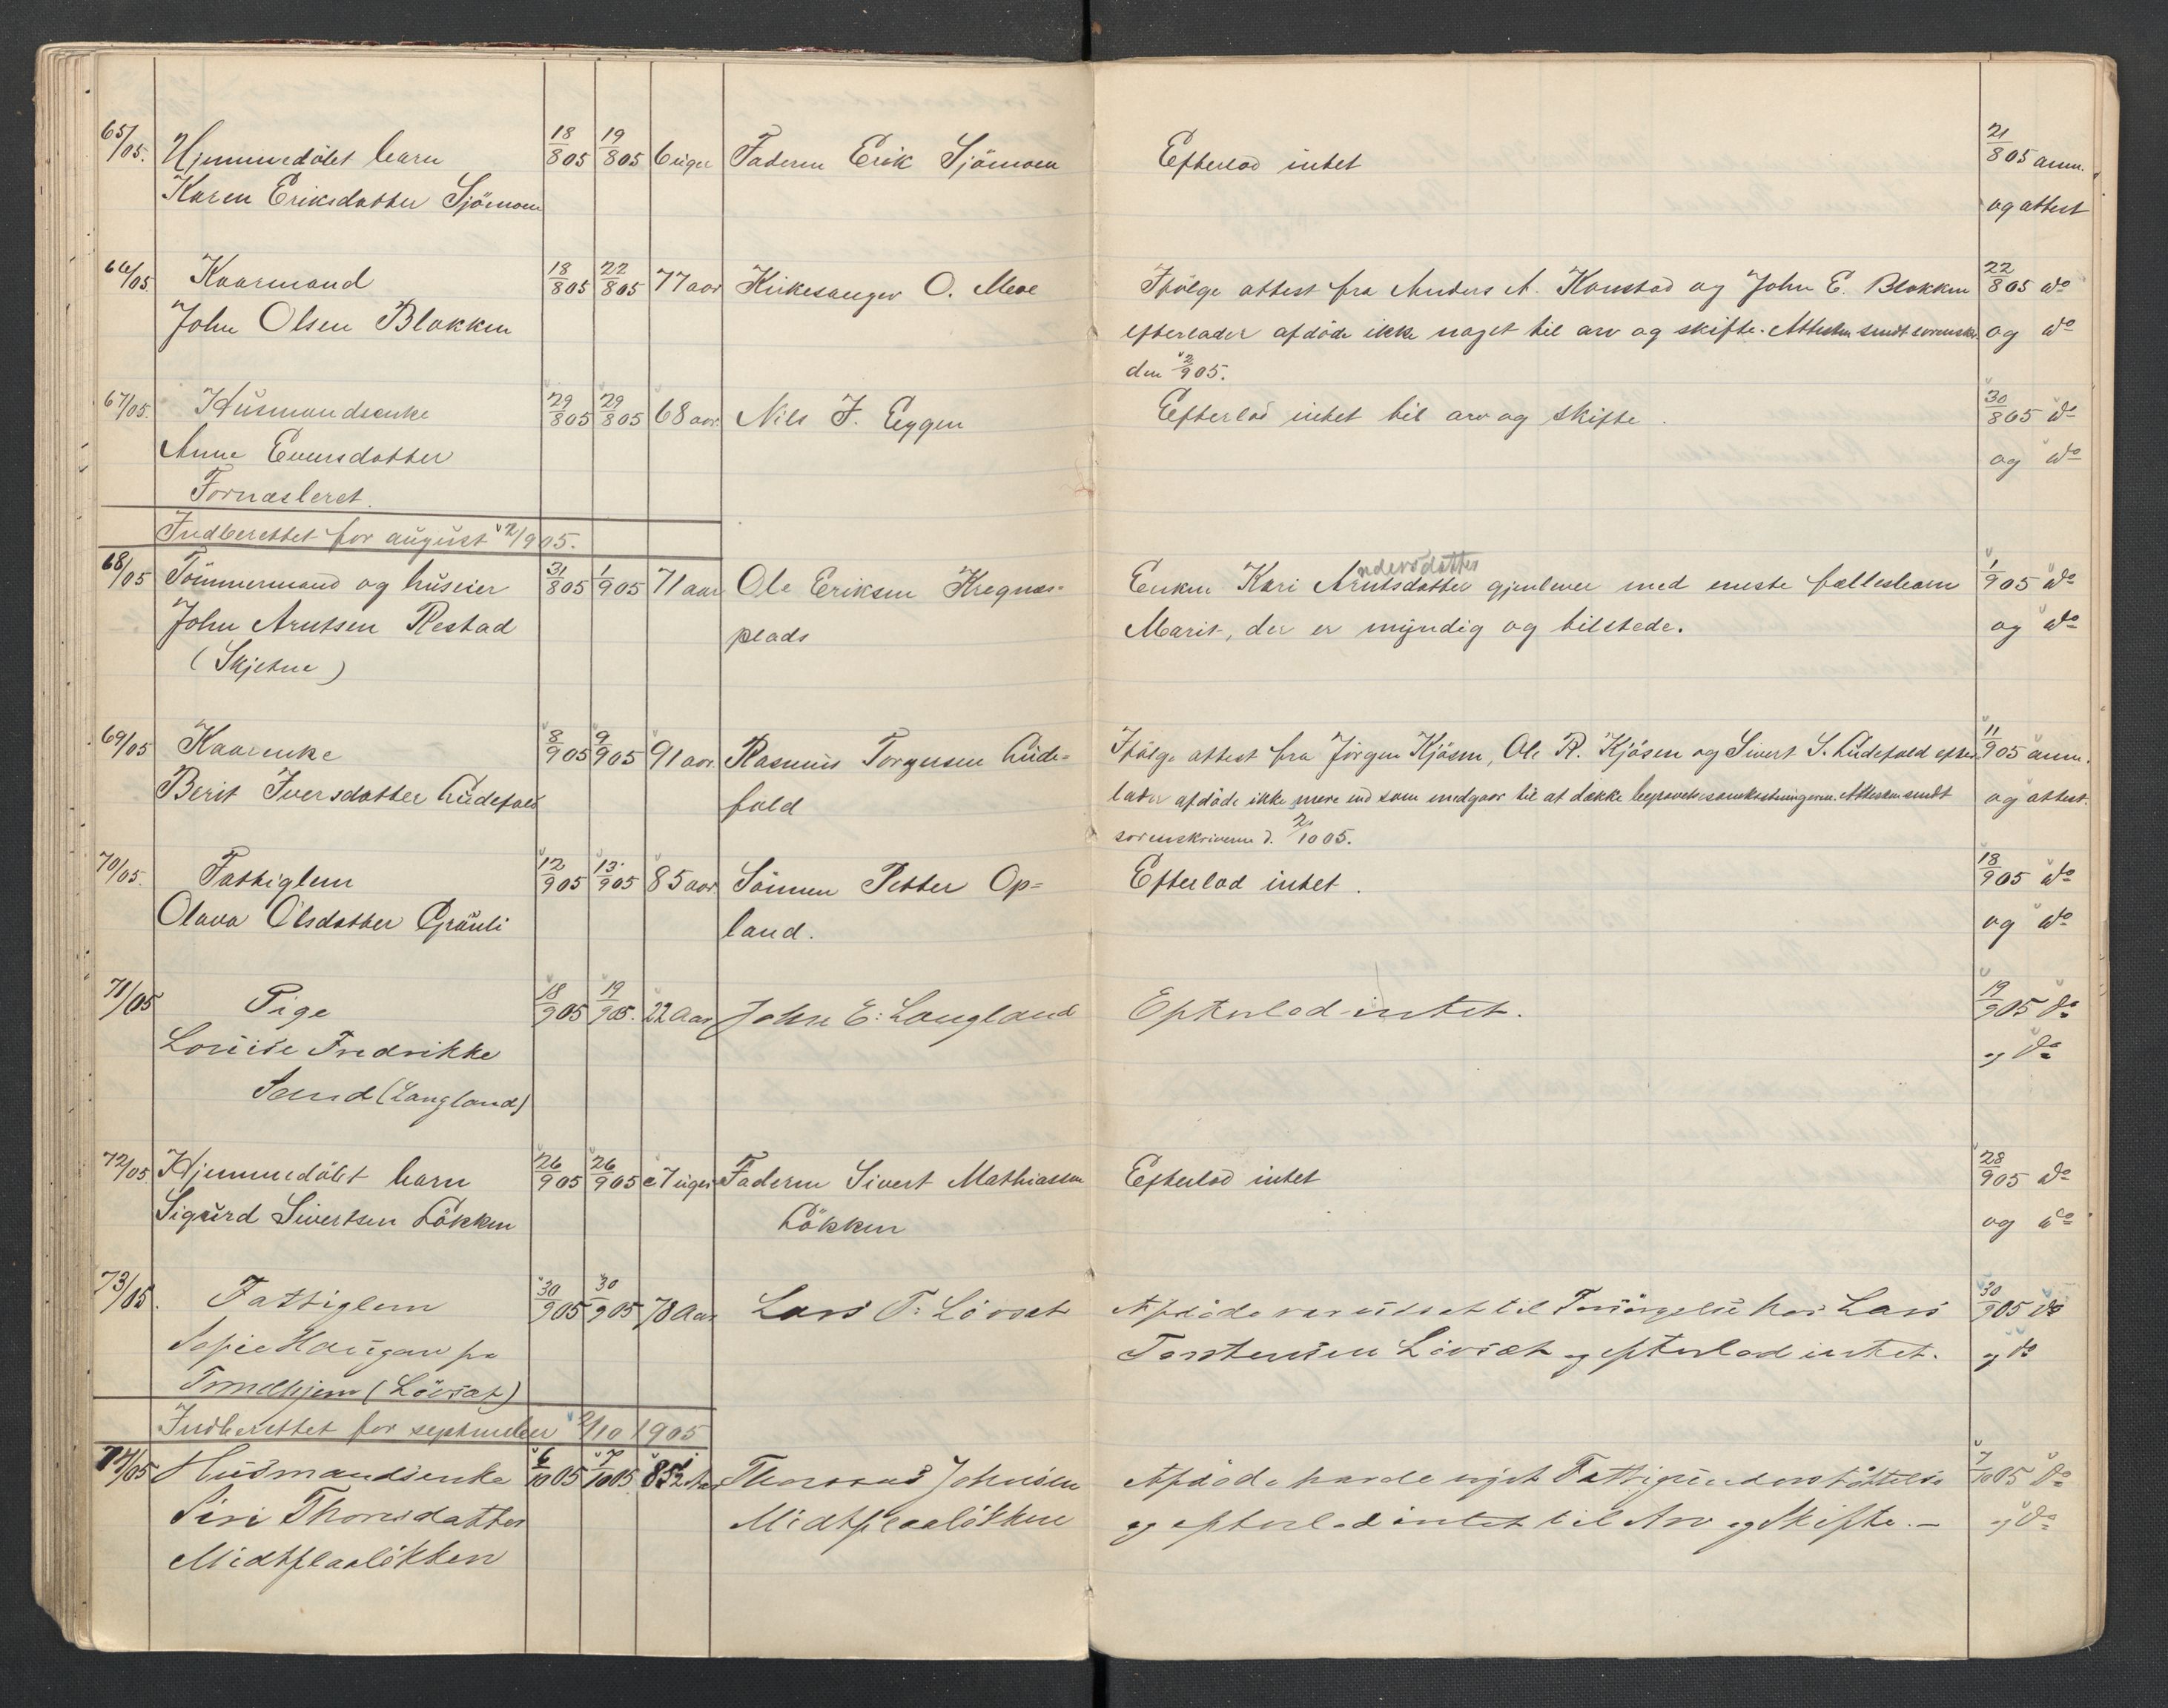 65/05. Hjemmedöbt barn 18/8 05 19/8 05 6 uger Faderen Erik Sjömoen Efterlod intet 21/8 05 anm.
Karen Eriksdatter Sjömoen og attest
66/05. Kaarmand 18/8 05 22/8 05 77 aar Kirkesanger O. Moe Ifölge attest fra Anders A. Konstad og John E. Blokken 22/8 05 do
John Olsen Blokken efterlader afdöde ikke noget til arv og skifte. Attesten sendt sorenskr. og do
den 2/9 05.
67/05. Husmandsenke 29/8 05 29/8 05 68 aar Nils J. Eggen Efterlod intet til arv og skifte. 30/8 05 do
Anne Evensdatter og do
Fornæsleret
Indberettet for august 2/9 05.
68/05 Tömmermand og huseier 31/8 05 1/9 05 71 aar Ole Eriksen Kregnæs- Enken Kari Arntsdatter ndersdatter gjenlever med eneste fællesbarn 1/9 05 do
John Arntsen Restad plads Marit, der er myndig og tilstede. og do
(Skjetne)
69/05 Kaarenke 8/9 05 9/9 05 91 aar Rasmus Torgersen Lude- Ifölge attest fra Jörgen Kjösen, Ole R. Kjösen og Sivert S. Ludefald efter- 11/9 05 anm.
Berit Iversdatter Ludefald fald lader afdöde ikke mere end som medgaar til at dække begravelsesomkostningerne. Attesten sendt og attest.
sorenskriveren d. 2/10 05.
70/05. Fattiglem 12/9 05 13/9 05 85 aar Sönnen Petter Op- Efterlod intet. 18/9 05 do
Olava Olsdatter Grauli land. og do
71/05 Pige 18/9 05 19/9 05. 22 Aar John E: Langland Efterlod intet. 19/9 05 do
Louise Fredrikke og do
Sand (Langland)
72/05 Hjemmedöbt barn 26/9 05 26/9 05 7 uger Faderen Sivert Mathiassen Efterlod intet 28/9 05 do
Sigurd Sivertsen Lökken Lökken og do
73/05. Fattiglem 30/9 05 30/9 05 78 Aar Lars T: Lövset Afdöde var udsat til Forsörgelse hos Lars 30/9 05 do
Sofie Haugan fra Torstensen Lövset og efterlod intet. og do
Trondhjem (Lövset)
Indberettet for september 2/10 1905
74/05 Husmandsenke 6/10 05 7/10 05 85 1/2 Aar Thomas Johnsen Afdöde havde nydt Fattigunderstöttelse 7/10 05 do
Siri Thorsdatter Midtflaalökken og efterlod intet til Arv og Skifte. – og do
Midtflaalökken